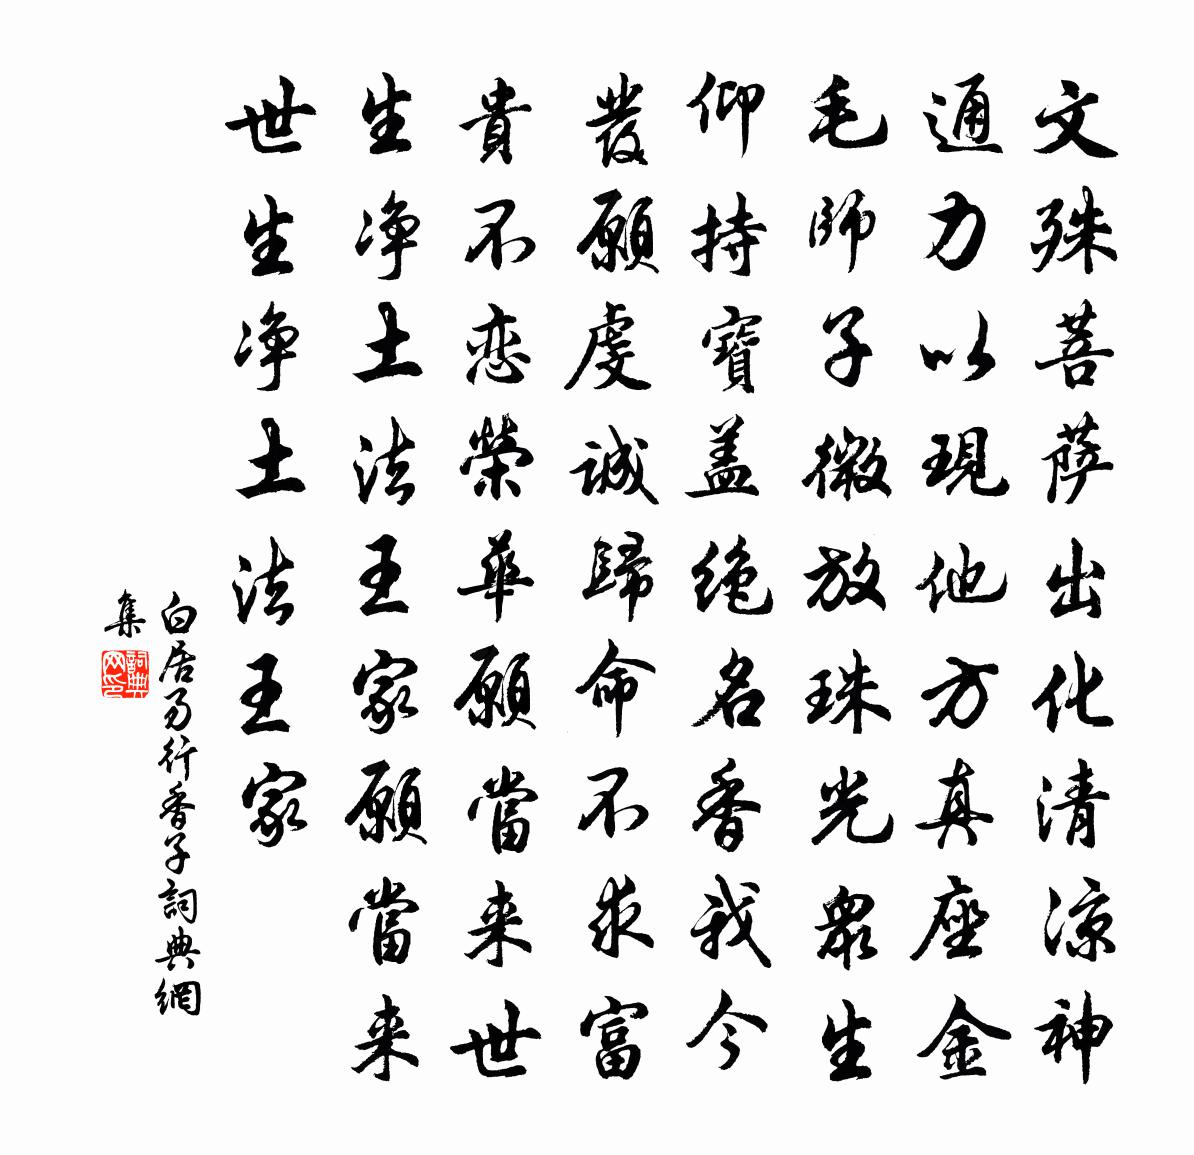 文殊菩萨出化清凉神
通力以現他方真座金
毛師子微放珠光眾生
仰持寶盖绝名香我今
發願虔誠歸命不求富
貴不恋榮華願當来世
生净土法王家願當来
世生净土法王家
白居易行香子詞典網
集
詞典網印